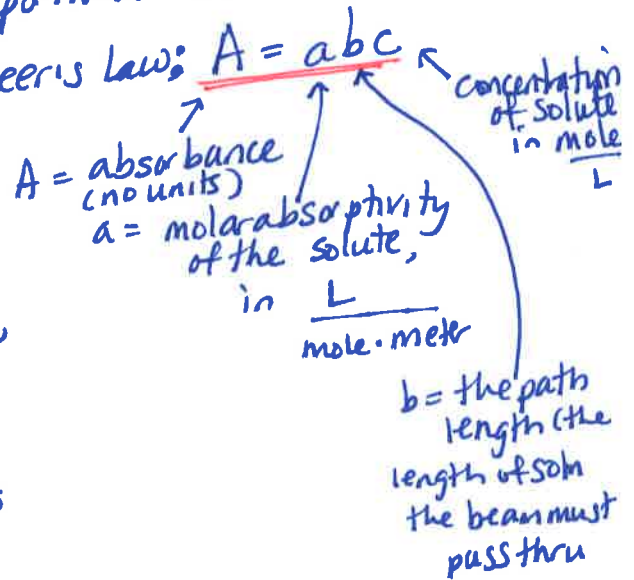 eer's Law: A = abc
concentration
of solute
in mole
L
A = absorbance
(no units)
a = molar absorptivity
of the solute,
in L
mole · meter
b = the path
length (the
length of soln
the beam must
pass thru